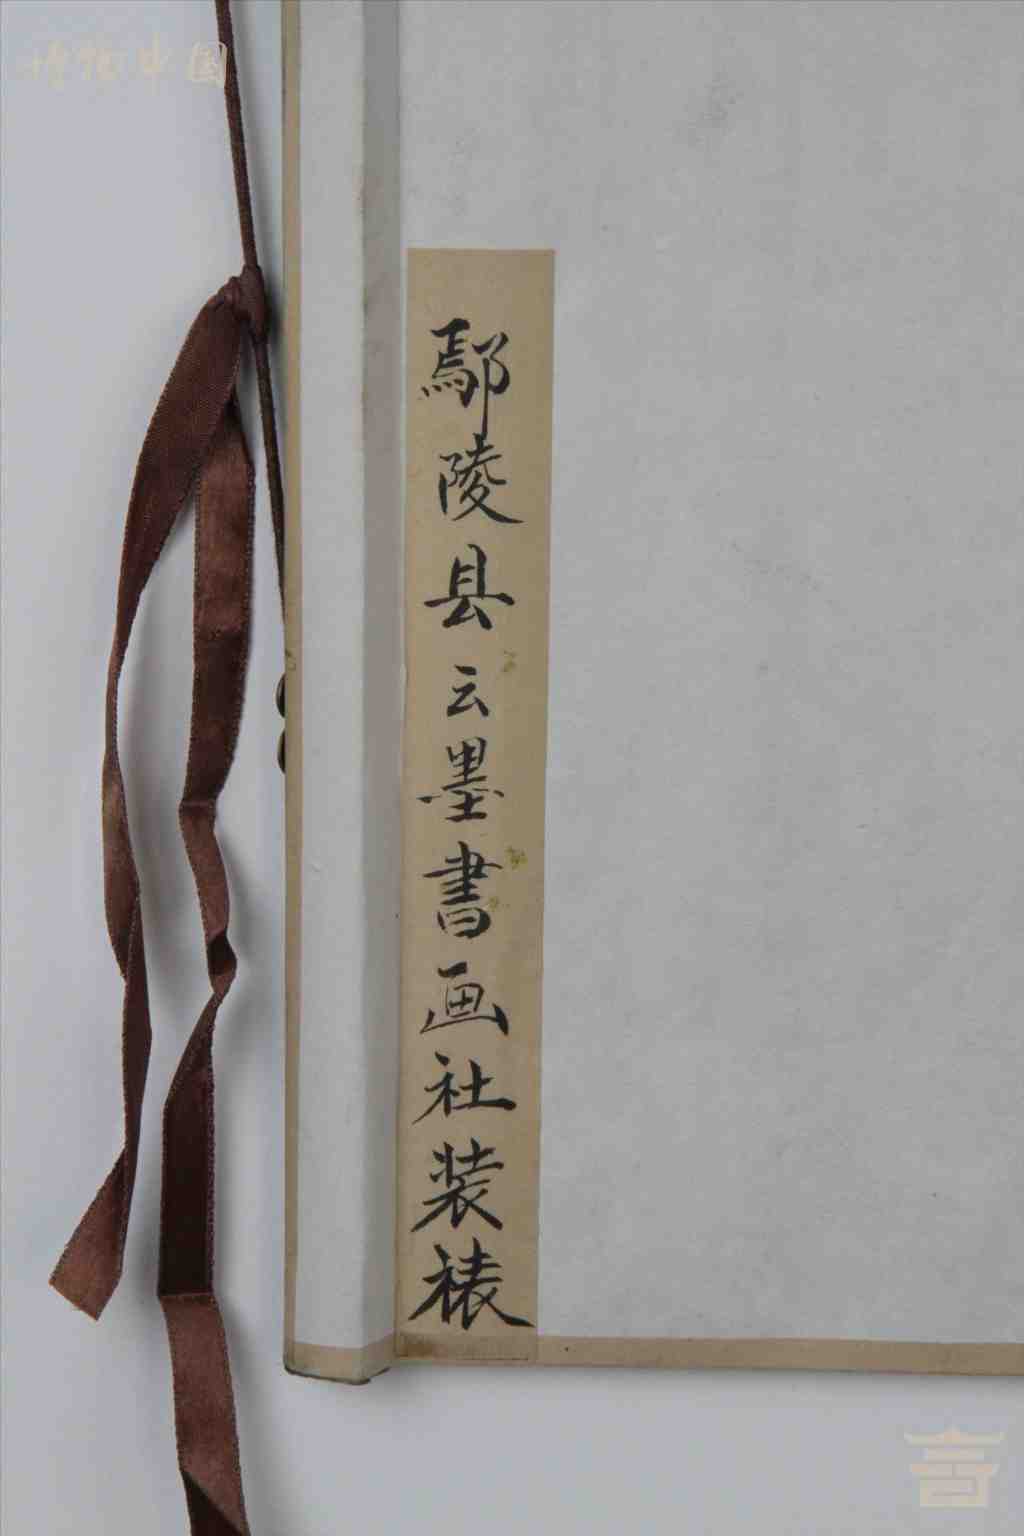 博物中国
鄢陵县云墨書画社装裱